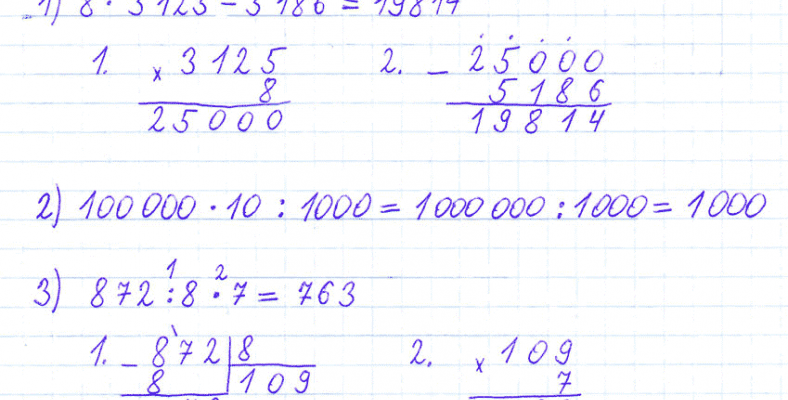 1) 8 · 3125 − 5186 = 19814
1. × 3125 2. − 25000
8 5186
25000 19814
2) 100 000 · 10 : 1000 = 1000 000 : 1000 = 1000
1 2
3) 872 : 8 · 7 = 763
1. − 872 | 8 2. × 109
8 109 7